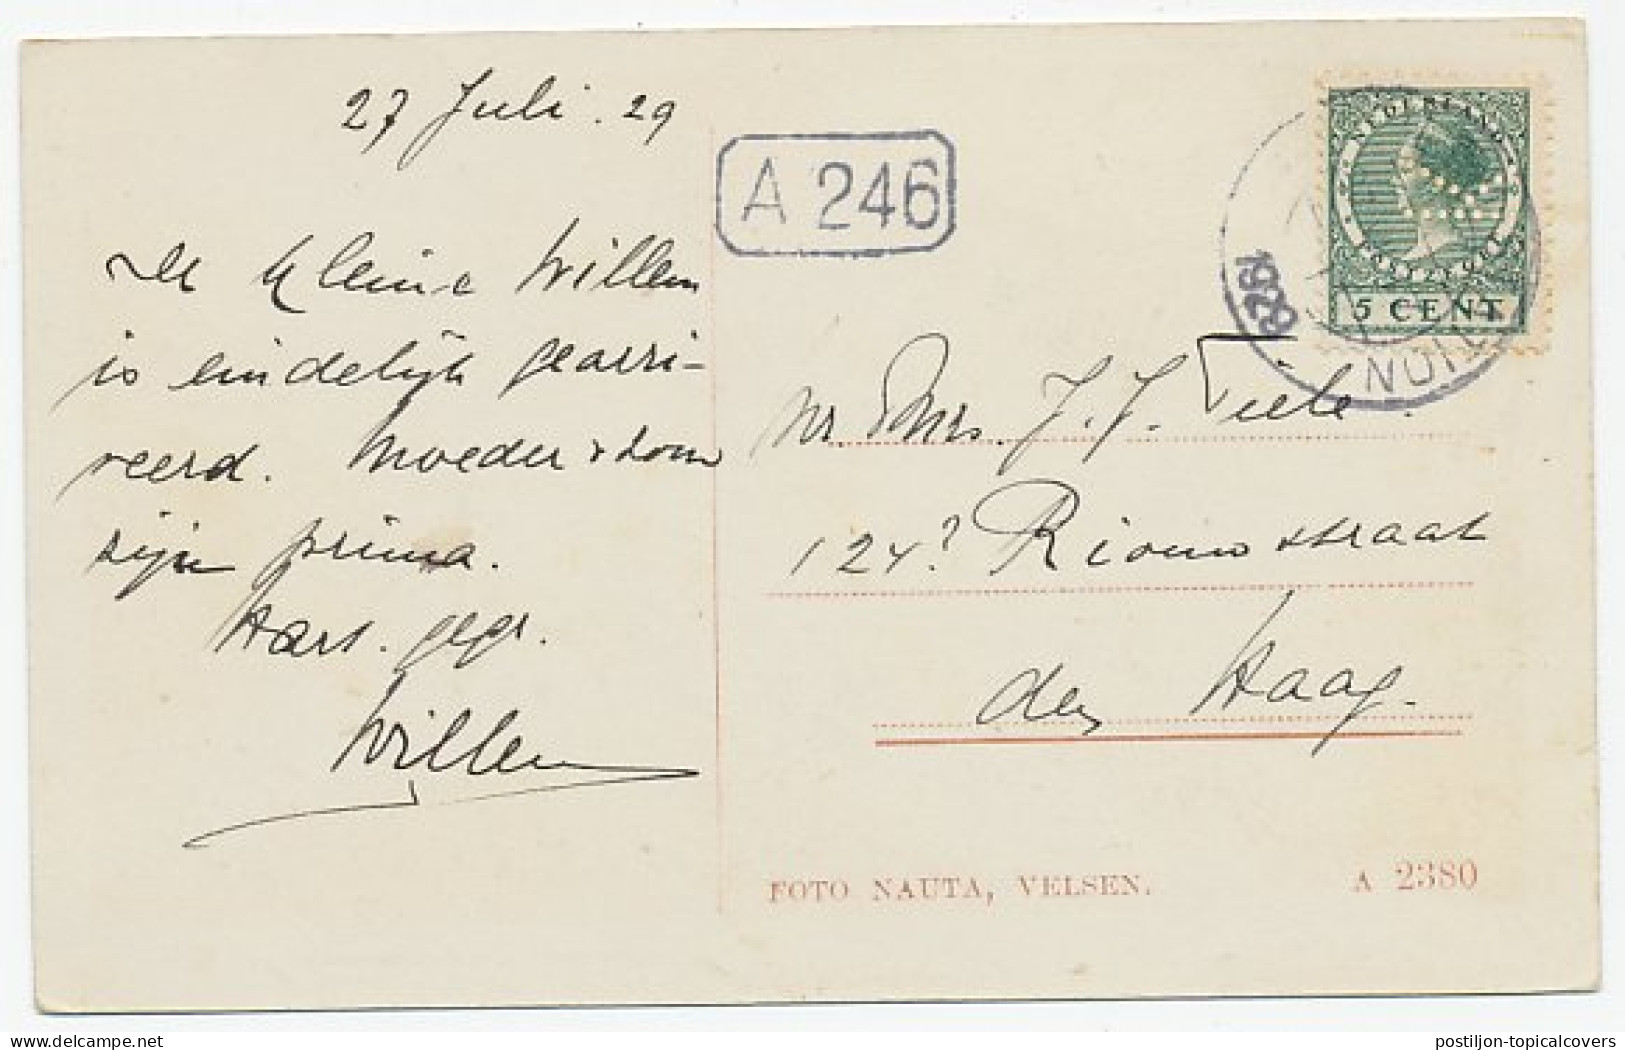 27 Juli. 29
De kleine Willem
is eindelijk gearri-
veerd. Moeder & zoon
zijn prima.
Hart. gegr.
Willem
A 246
NEDERLAND
POSTZEGEL
5 CENT
1928
Mr. & Mrs. J. J. Tiele.
124? Riouwstraat
den Haag.
FOTO NAUTA, VELSEN.
A 2380
delcampe.net
postiljon-topicalcovers